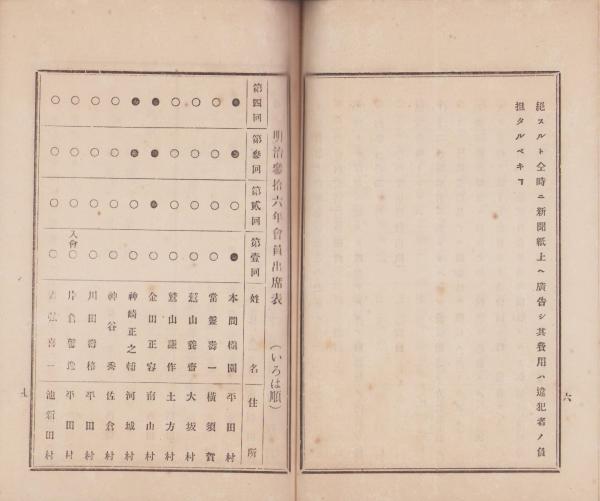 絕スルト仝時ニ新聞紙上ヘ廣告シ其費用ハ違犯者ノ負
担タルベキヿ
六
明治參拾六年會員出席表 (いろは順)
第四回 第參回 第貳回 第壹回 姓名 住所
● ● ○ ● 本間機園 平田村
○ ○ ○ ○ 常盤壽一 橫須賀
○ ○ ○ ○ 鷲山養齋 大坂村
○ ○ ○ ○ 鷲山謙作 土方村
● ● ● ○ 金田正容 南山村
● ● ○ ○ 神崎正之輔 河城村
○ ○ ○ ○ 神谷秀 佐倉村
○ ○ ○ ○ 川田壽 平田村
○ ○ ○ 入會○ 片倉 平田村
○ ○ ○ ○ 弦喜一 池新田村
七